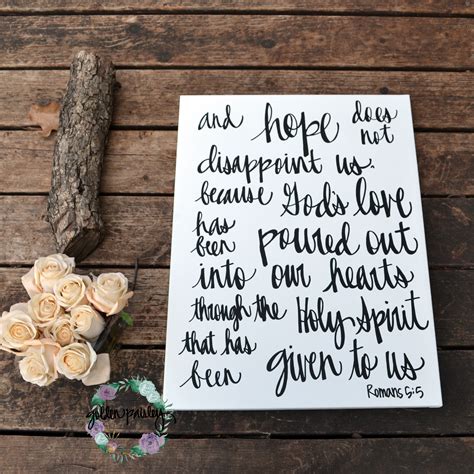 and hope does not
disappoint us.
because God's love
has been poured out
into our hearts
through the Holy Spirit
that has been given to us
Romans 5:5
golden pauley